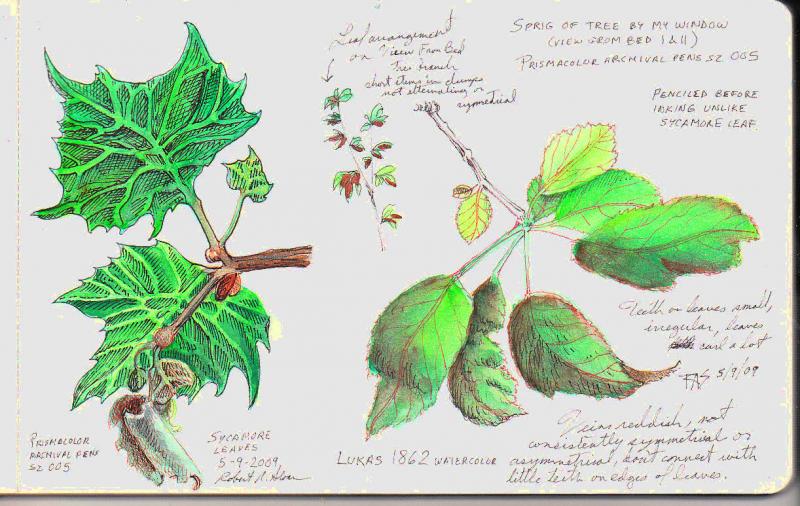 Leaf arrangement
on View From Bed
Tree branch
short stems in clumps
not alternating or
symmetrical
SPRIG OF TREE BY MY WINDOW
(VIEW FROM BED I & II)
PRISMACOLOR ARCHIVAL PENS SZ 005
PENCILED BEFORE
INKING UNLIKE
SYCAMORE LEAF
Teeth on leaves small,
irregular, leaves
curl a lot
RAS 5/9/09
Veins reddish, not
consistently symmetrical or
asymmetrical, dont connect with
little teeth on edges of leaves.
LUKAS 1862 WATERCOLOR
PRISMACOLOR
ARCHIVAL PENS
SZ 005
SYCAMORE
LEAVES
5-9-2009
Robert A. Sloan